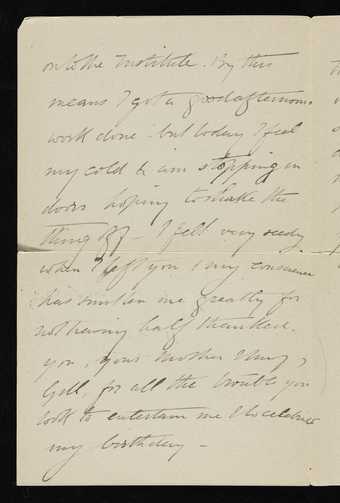 on to the Institute. By this
means I got a good afternoons
work done - but today I feel
my cold & am stopping in
doors hoping to shake the
thing off - I felt very seedy
when I left you & my conscience
has smitten me greatly for
not having half thanked
you, your mother &
for all the trouble you
took to entertain me & to celebrate
my birthday -